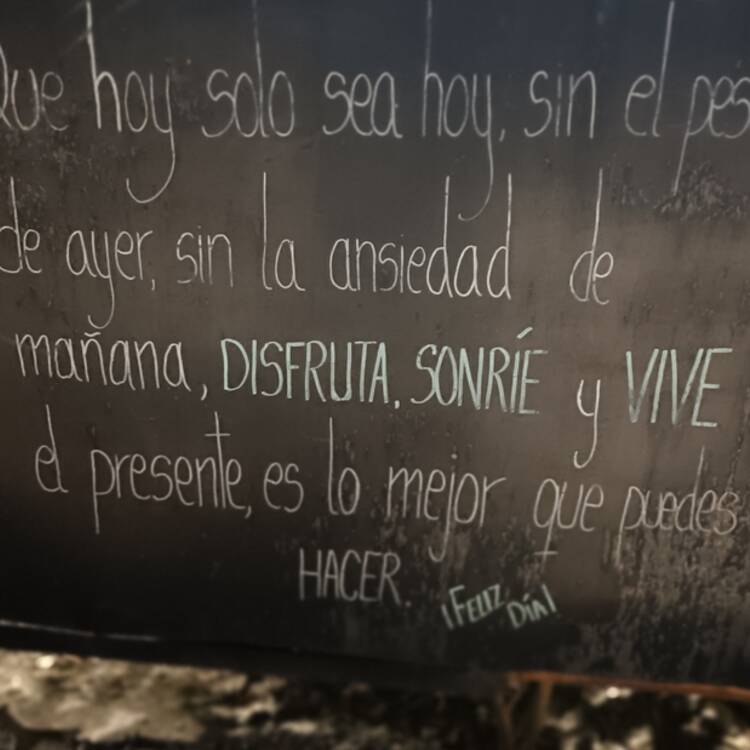 Que hoy solo sea hoy, sin el pes
de ayer, sin la ansiedad de
mañana, DISFRUTA, SONRÍE y VIVE
el presente, es lo mejor que puedes
HACER. ¡FELIZ DÍA!